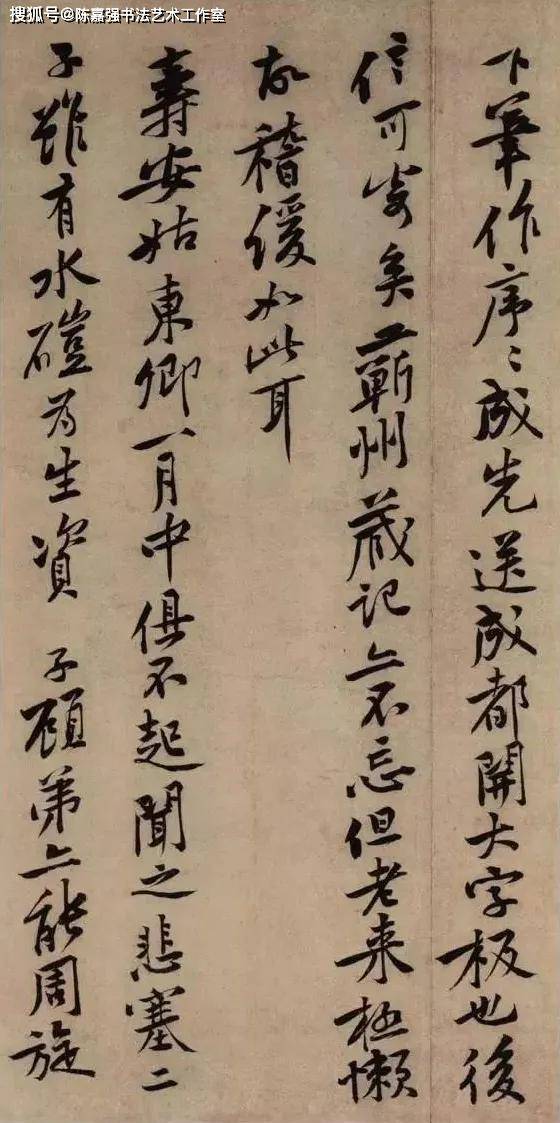 搜狐号@陈嘉强书法艺术工作室
下筆作序〻成先送成都開大字板也後
信可寄矣蘄州藏記亦不忘但老来極懶
故稽缓如此耳
壽安姑東卿一月中俱不起聞之悲塞二
子雖有水磑为生資 子顧弟亦能周旋